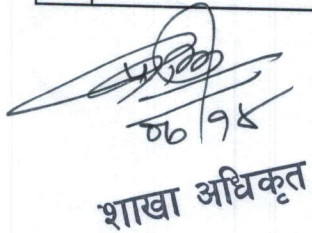 ०७/१४
शाखा अधिकृत